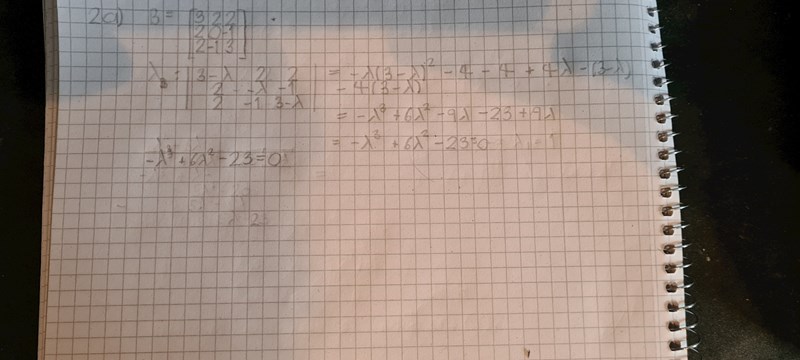 2a) B = [3 2 2
2 0 -1
2 -1 3]
λ_B = |3-λ 2 2 = -λ(3-λ)² - 4 - 4 + 4λ - (3-λ)
2 -λ -1 - 4(3-λ)
2 -1 3-λ|
= -λ³ + 6λ² - 9λ - 23 + 9λ
= -λ³ + 6λ² - 23 = 0
-λ³ + 6λ² - 23 = 0